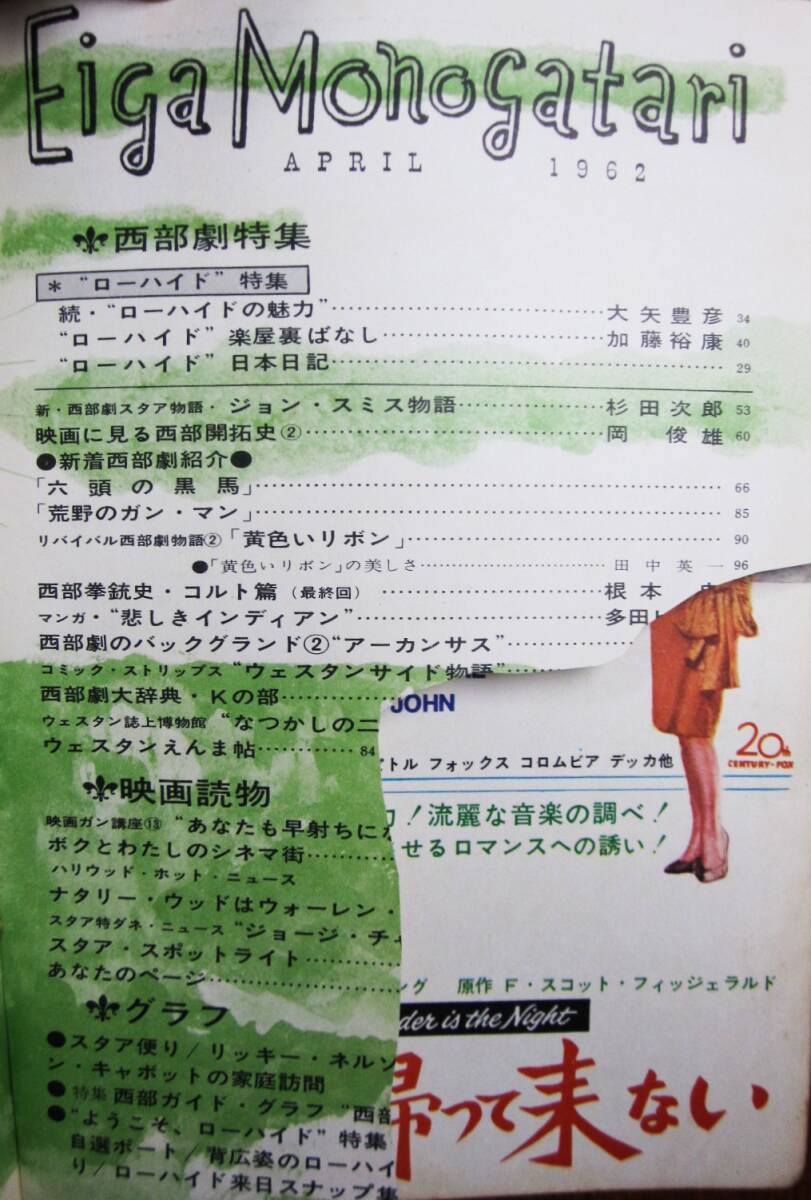 Eiga Monogatari
APRIL 1962
西部劇特集
* “ローハイド” 特集
続・“ローハイドの魅力”……大矢豊彦 34
“ローハイド” 楽屋裏ばなし……加藤裕康 40
“ローハイド” 日本日記……29
新・西部劇スタア物語・ジョン・スミス物語……杉田次郎 53
映画に見る西部開拓史②……岡俊雄 60
●新着西部劇紹介●
「六頭の黒馬」……66
「荒野のガン・マン」……85
リバイバル西部劇物語②「黄色いリボン」……90
●「黄色いリボン」の美しさ……田中英一 96
西部拳銃史・コルト篇（最終回）……根本
マンガ・“悲しきインディアン”……多田
西部劇のバックグランド②“アーカンサス”……
コミック・ストリップス “ウェスタンサイド物語”……
西部劇大辞典・Kの部……
ウェスタン誌上博物館 “なつかしの二
ウェスタンえんま帖……84
映画読物
映画ガン講座⑬ “あなたも早射ちに
ボクとわたしのシネマ街……
ハリウッド・ホット・ニュース
ナタリー・ウッドはウォーレン・
スタア特ダネ・ニュース “ジョージ・チャ
スタア・スポットライト……
あなたのページ……
グラフ
●スタア便り/リッキー・ネルソ
ン・キャボットの家庭訪問
●特集 西部ガイド・グラフ “西部
●“ようこそ、ローハイド” 特集
自選ポート/背広姿のローハイ
り/ローハイド来日スナップ集
JOHN
20th
CENTURY-FOX
トル フォックス コロムビア デッカ他
！流麗な音楽の調べ！
せるロマンスへの誘い！
ング 原作 F・スコット・フィッジェラルド
der is the Night
帰って来ない